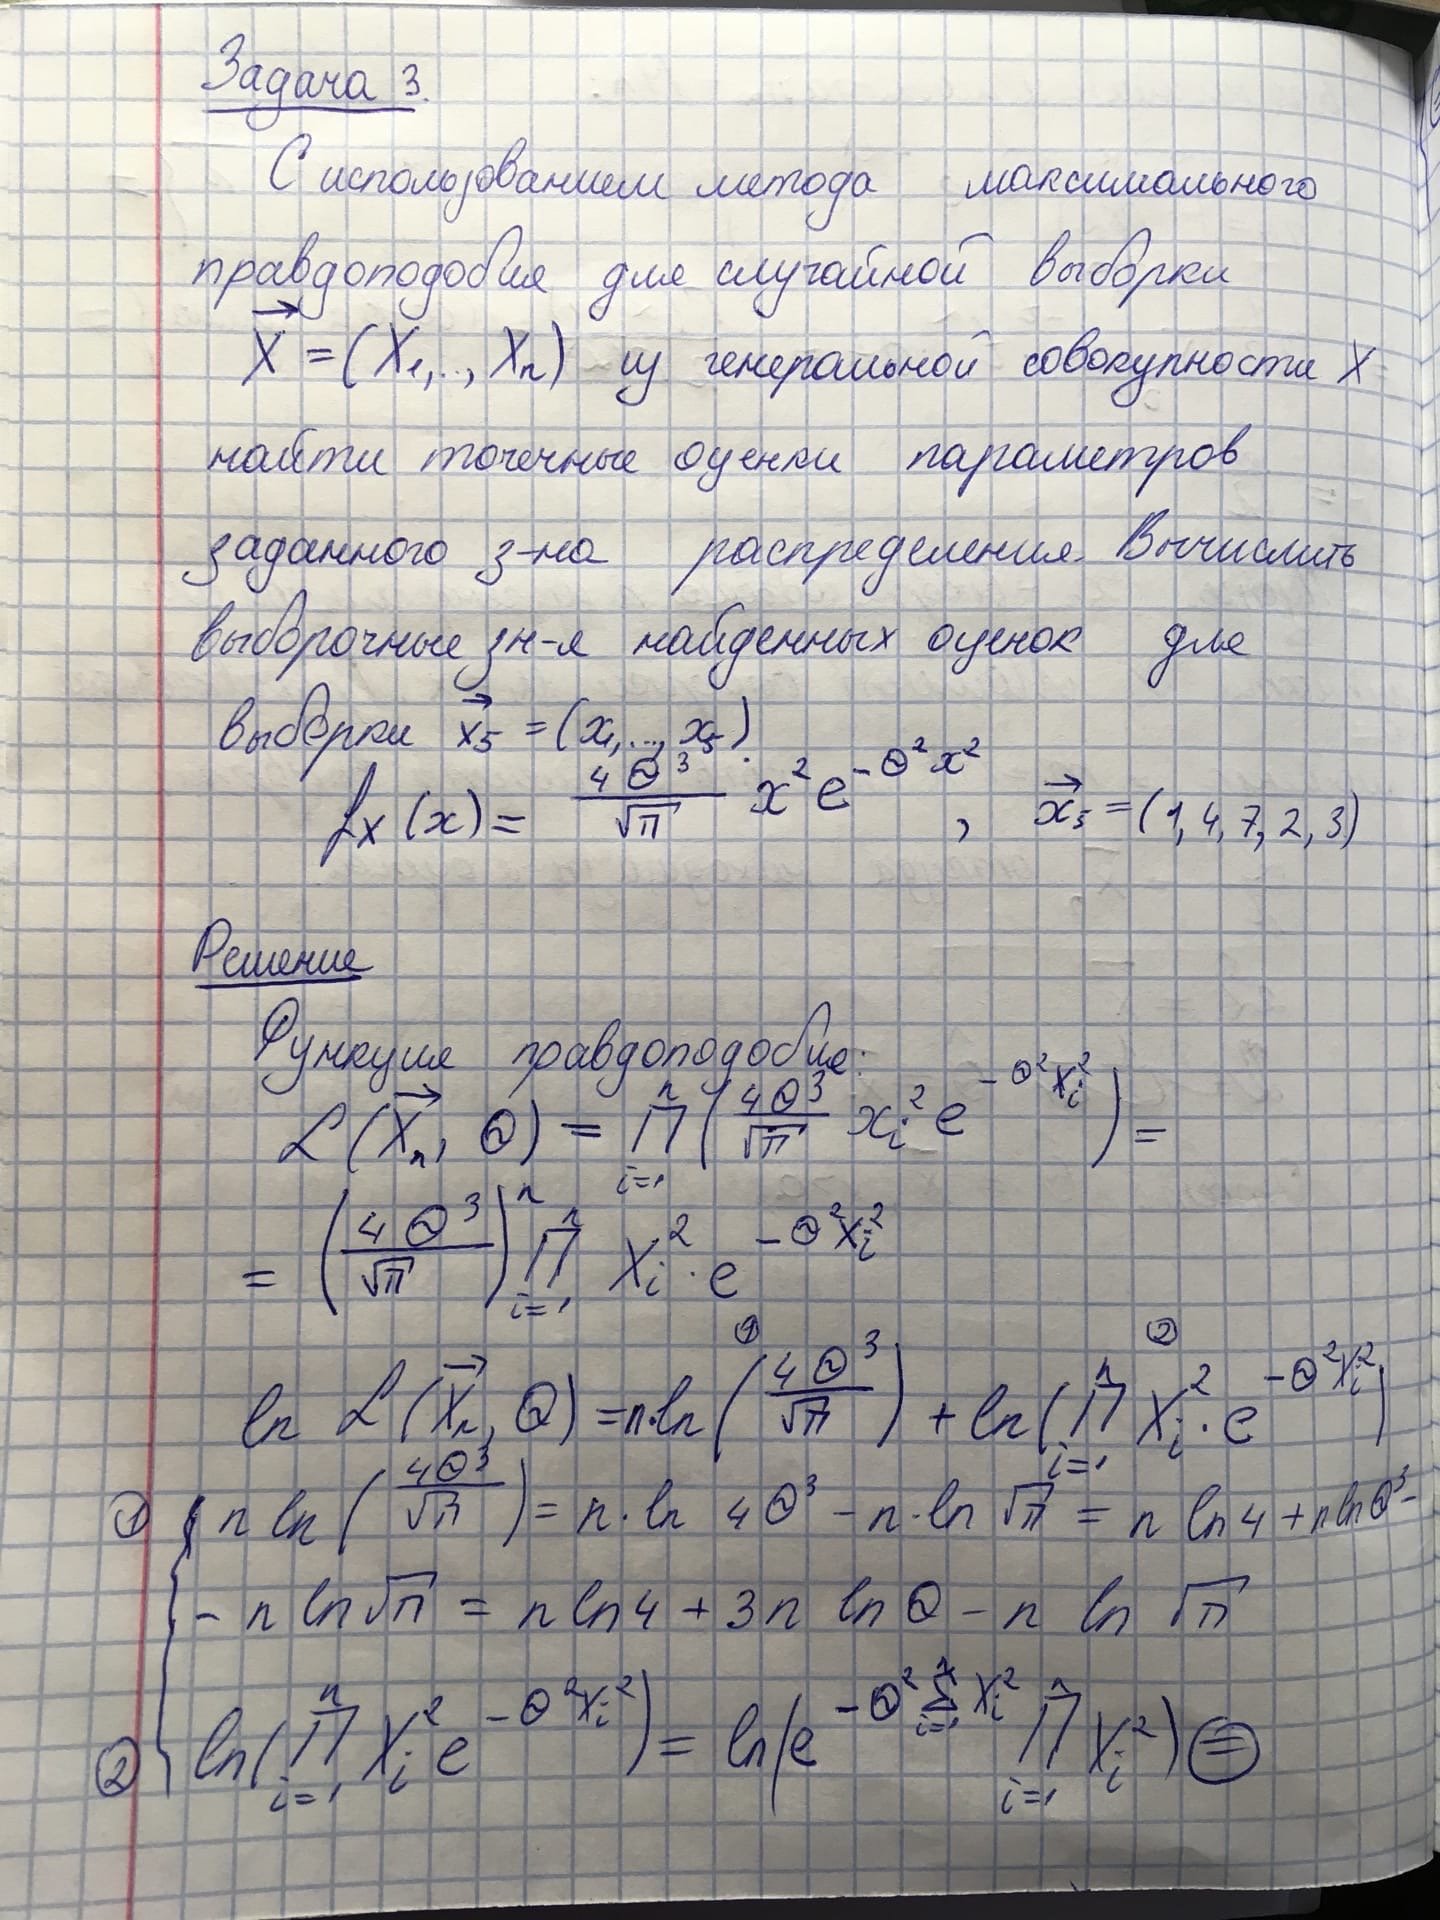 Задача 3.
С использованием метода максимального
правдоподобия для случайной выборки
X⃗ = (X₁,.., Xₙ) из генеральной совокупности X
найти точечные оценки параметров
заданного з-на распределения. Вычислить
выборочные зн-я найденных оценок для
выборки x⃗₅ = (x₁,..., x₅).
f_X(x) = 4Θ³/√π x² e^(-Θ²x²) , x⃗₅ = (1, 4, 7, 2, 3)
Решение
Функция правдоподобия:
L(X⃗ₙ, Θ) = ∏ᵢ₌₁ⁿ (4Θ³/√π xᵢ² e^(-Θ²Xᵢ²)) =
= (4Θ³/√π)ⁿ ∏ᵢ₌₁ⁿ Xᵢ² · e^(-Θ²Xᵢ²)
① ②
ln L(X⃗ₙ, Θ) = n·ln(4Θ³/√π) + ln(∏ᵢ₌₁ⁿ Xᵢ² · e^(-Θ²Xᵢ²))
① { n ln(4Θ³/√π) = n·ln 4Θ³ - n·ln √π = n ln 4 + n ln Θ³ -
- n ln √π = n ln 4 + 3n ln Θ - n ln √π
② ln(∏ᵢ₌₁ⁿ Xᵢ² e^(-Θ²Xᵢ²)) = ln(e^(-Θ² ∑ᵢ₌₁ⁿ Xᵢ²) ∏ᵢ₌₁ⁿ Xᵢ²) ⊜